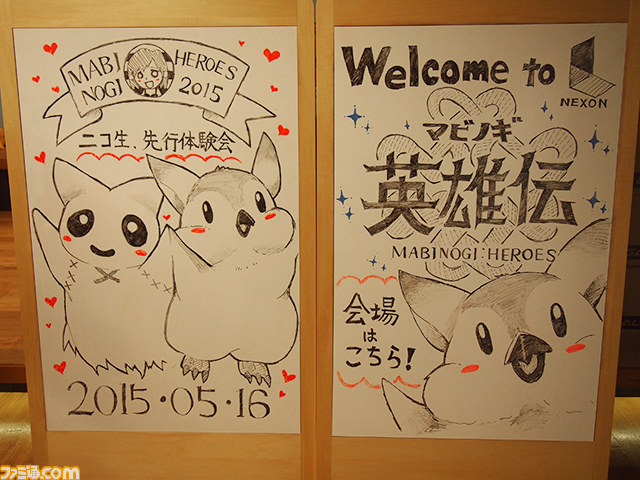 MABI NOGI
HEROES 2015
ニコ生、先行体験会
2015・05・16
Welcome to
NEXON
マビノギ
英雄伝
MABINOGI:HEROES
会場
は
こちら!
ファミ通.com